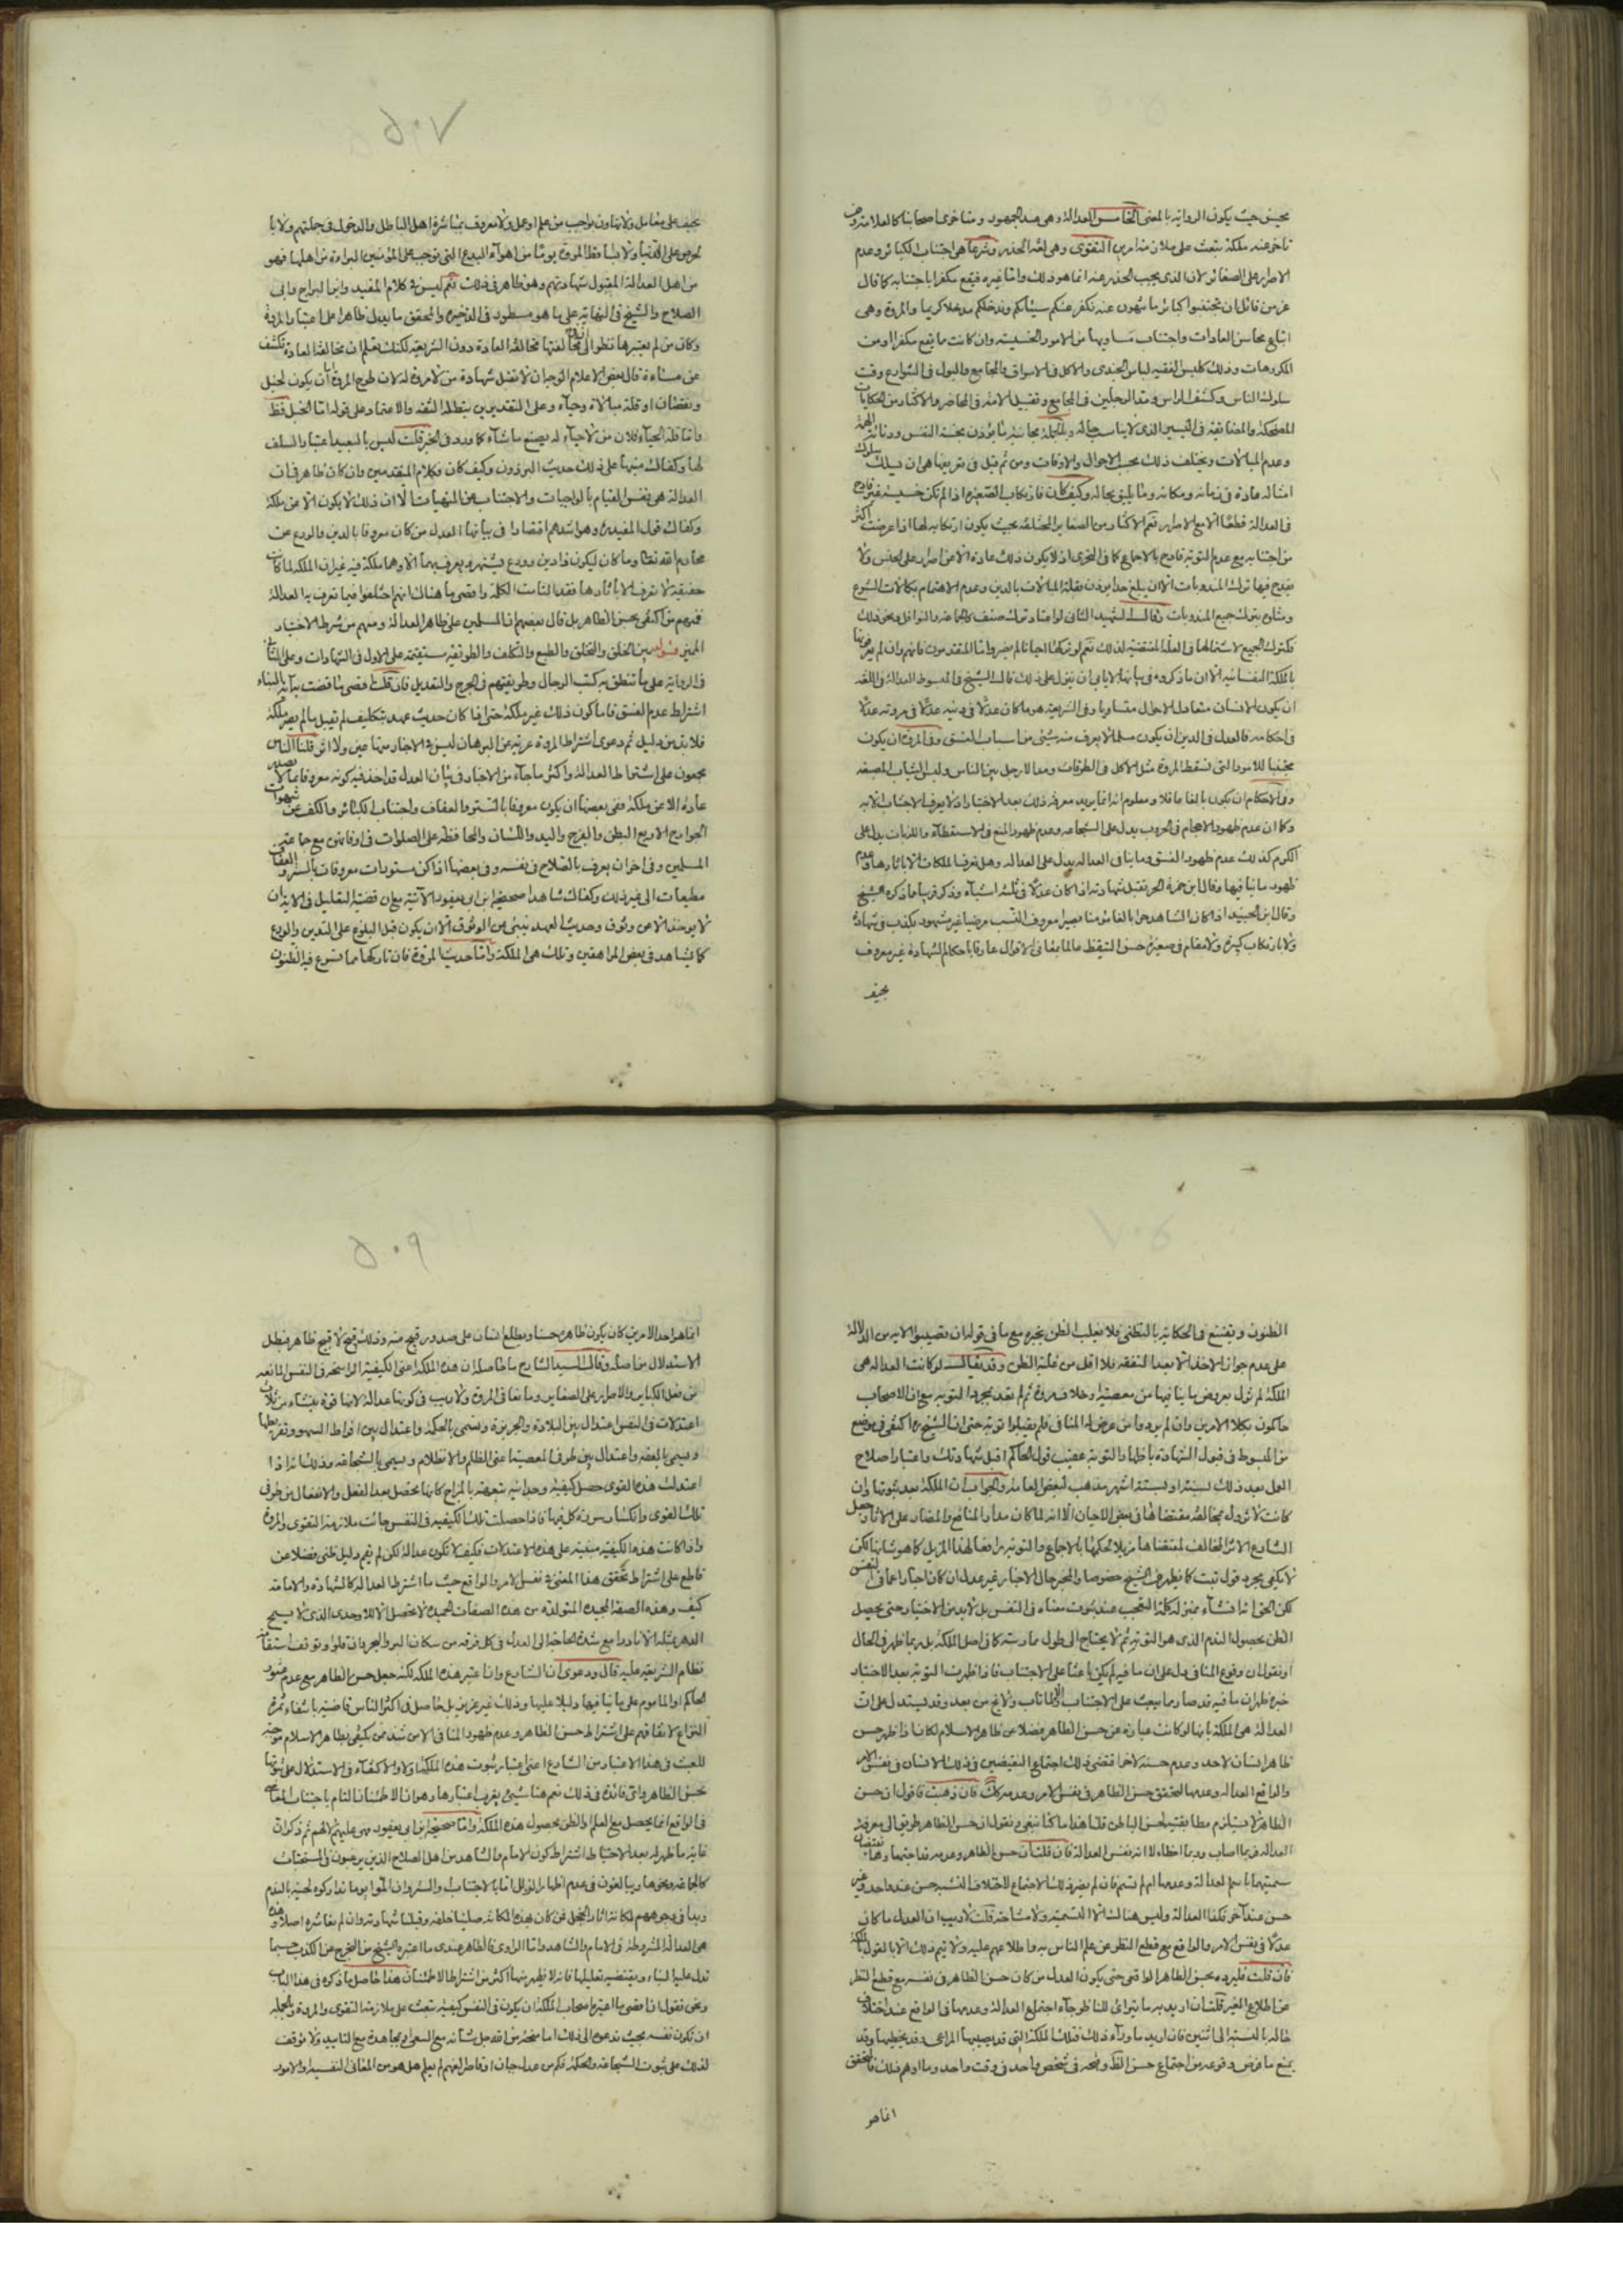 بحيث يكون الرواية بالمعنى الخامس العدالة وهي عند الجمهور ومتأخرى اصحابنا كالعلامة ومن
تأخر عنه ملكة تبعث على ملازمة امرين التقوى وهي لغة الحذر وشرعا هي اجتناب الكبائر وعدم
الاصرار على الصغائر لان الذى يجب الحذر عنه انما هو ذلك واما غيره فيقع مكفرا باجتنابه كما قال
عز من قائل ان تجتنبوا كبائر ما تنهون عنه نكفر عنكم سيئاتكم وندخلكم مدخلا كريما والمروة وهي
اتباع محاسن العادات واجتناب مساويها من الامور الخسيسة وان كانت ما يقع مكفرا او من
المكروهات وذلك كلبس الفقيه لباس الجندى والاكل في الاسواق والمجامع والبول في الشوارع وقت
سلوك الناس وكشف الراس ومد الرجلين في المجامع وتقبيل الامة في المحاضر والاكثار من الحكايات
المضحكة والمضايقة في اليسير الذى لا يناسب حاله وبالجملة مجانبة ما يؤذن بخسة النفس ودنائة الهمة
وعدم المبالات ويختلف ذلك بحسب الاحوال والاوقات ومن ثم قيل في تعريفها هي ان يسلك سلوك
امثاله عادة في زمانه ومكانه وما يليق بحاله وكيف كان فارتكاب الصغيرة اذا لم تكن خسيسة غير قادح
في العدالة قطعا الا مع الاصرار نعم الاكثار من الصغاير المختلفة بحيث يكون ارتكابه لها اذا عرضت اكثر
من اجتنابه مع عدم التوبة قادح بالاجماع كما في التحرير اذ لا يكون ذلك عادة الا عن اصرار على الجنس ولا
يقدح فيها ترك المندوبات الا ان يبلغ حدا يؤذن بقلة المبالات بالدين وعدم الاهتمام بكمالات الشرع
ومثلوه بترك جميع المندوبات قال الشهيد الثاني لو اعتاد ترك صنف كالجماعة والنوافل ونحو ذلك
فكترك الجميع لاشتراكها في العلة المقتضية لذلك نعم لو تركها احيانا لم يضر واما المتقدمون فانهم وان لم يعرفوها
بالملكة النفسانية الا ان ما ذكروه في بيانها لا يابى ان ينزل على ذلك قال الشيخ في المبسوط العدالة في اللغة
ان يكون الانسان متعادل الاحوال متساويا وفي الشريعة هو ما كان عدلا في دينه عدلا في مروته عدلا
في احكامه فالعدل في الدين ان يكون مسلما لا يعرف منه شيء من اسباب الفسق وفي المروة ان يكون
مجتنبا للامور التي تسقط المروة مثل الاكل في الطرقات ومد الارجل بين الناس ولبس الثياب المصبغة
وفي الاحكام ان يكون بالغا عاقلا ومعلوم انه انما يريد معرفة ذلك بعد الاختبار اذ لا يعرف الاجتناب الا به
وكما ان عدم ظهور الاحجام في الحروب يدل على الشجاعة وعدم ظهور المنع في الاستعطاء واللزبات يدل على
الكرم كذلك عدم ظهور الفسق وما ينافي العدالة يدل على العدالة وهل تعرف الملكات الا باثارها وعدم
ظهور ما ينافيها وقال ابن حمزة الحر تقبل شهادته اذا كان عدلا في ثلثة اشياء وذكر قريبا مما ذكره الشيخ
وقال ابن الجنيد اذا كان الشاهد حرا بالغا مؤمنا بصيرا معروف النسب مرضيا غير مشهور بكذب في شهادة
ولا بارتكاب كبيرة ولا مقام في صغيرة حسن التيقظ عالما بمعاني الاقوال عارفا باحكام الشهادة غير معروف
بحيف
بحيف على معامل ولا تهاون بواجب من علم او عمل ولا معروف بمباشرة اهل الباطل والدخول في جملتهم ولا با
لحرص على الدنيا ولا بساقط المروة بريئا من اهواء البدع التي توجب على المؤمنين البراءة من اهلها فهو
من اهل العدالة المقبول شهادتهم وهو ظاهر في ذلك نعم ليس في كلام المفيد وابنا البراج وابى
الصلاح والشيخ في النهاية على ما هو مسطور في الذخيره والمحقق ما يدل ظاهرا على اعتبار المروة
وكان من لم يعتبرها نظر الى ان مخالفتها مخالفة العادة دون الشريعة لكنك تعلم ان مخالفة العادة تكشف
عن مساءة قال بعض الاعلام الوجه ان لا تقبل شهادة من لا مروة له لان طرح المروة اما ان يكون لخبل
ونقصان او قلة مبالاة وحياء وعلى التقديرين يبطل الثقة والاعتماد على قوله اما الخبل فظ
واما قلة الحياء فلان من لا حياء له يصنع ما شاء كما ورد في الخبر قلت ليس بالبعيد اعتبار السلف
لها وكفاك منبها على ذلك حديث البرذون وكيف كان وكلام المتقدمين وان كان ظاهر في ان
العدالة هي نفس القيام بالواجبات والاجتناب عن المنهيات الا ان ذلك لا يكون الا عن ملكة
وكفاك قول المفيد وهو اشدهم اقتصادا في بيانها العدل من كان معروفا بالدين والورع عن
محارم الله تعالى وما كان ليكون ذا دين وورع يشتهر به ويعرف بهما الا وهما ملكة فيه غير ان الملكة لما كانت
حقيقة لا تعرف الا باثارها فقد التامت الكلمة واقصى ما هناك انهم اختلفوا فيما تعرف به العدالة
فمنهم من اكتفى بحسن الظاهر بل قال بعضهم انا المسلمين على ظاهر العدالة ومنهم من شرط الاختبار
المميز بين الخلق والتخلق والطبع والتكلف والطريقة مستقيمة على الاول في الشهادات وعلى الثاني
في الرواية على ما تنطق به كتب الرجال وطريقتهم في الجرح والتعديل فان قلت اقصى ما قضت به آية النباء
اشتراط عدم الفسق فاما كون ذلك عن ملكة حتى اذا كان حديث عهد بتكليف لم تقبل ما لم يصر ملكة
فلا بد من دليل ثم دعوى اشتراط المروة عرية عن البرهان ليس في الاخبار منها عين ولا اثر قلنا الناس
مجمعون على اشتراط العدالة واكثر ما جاء من الاخبار في بيان العدل قد اخذ فيه كونه معروفا بما لا يصدر
عادة الا عن ملكة ففي بعضها ان يكون معروفا بالستر والعفاف واجتناب الكبائر والكف عن شهوات
الجوارح الاربع البطن والفرج واليد واللسان والمحافظة على الصلوات في اوقاتهن مع جماعة
المسلمين وفي اخر ان يعرف بالصلاح في نفسه وفي بعضها اذا كن مستورات معروفات بالستر والعفاف
مطيعات الى غير ذلك وكفاك شاهدا صحيحة ابن ابى يعفور الآتية مع ان قضية التعليل في الاية ان
لا يؤخذ الا عن وثوق وحديث العهد بنبئ عن الوثوق الا ان يكون قبل البلوغ على التدين والورع
كما يشاهد في بعض المراهقين وتلك هي الملكة واما حديث المروة فان تاركها مما تسرع فيه الظنون
الظنون وتقنع في الحكاية بالتظني فلا يغلب الظن بخبره مع ما في قوله ان تصيبوا الاية من الدلالة
على عدم جواز الاخذ الا بعد التفقه فلا اقل من غلبة الظن وقد يقال لو كانت العدالة هي
الملكة لم تزل بعروض ما ينافيها من معصية او خلاف مروة ثم لم تعد بمجرد التوبة مع ان الاصحاب
حاكمون بكلا الامرين وان لم يردوا من عرض له المنافي فلم يقبلوا توبته حتى ان الشيخ ره اكتفى في موضع
من المبسوط في قبول الشهادة باظهار التوبة عقيب قول الحاكم اقبل شهادتك واعتبار اصلاح
العمل بعد ذلك لسنة او لستة اشهر مذهب لبعض العامة والجواب ان الملكة بعد ثبوتها وان
كانت لا تزول بمخالفة مقتضاها في بعض الاحيان الا انه لما كان مدار المنافع والمضار على الاثار جعل
الشارع الاثر المخالف لمقتضاها مزيلا لحكمها بالاجماع والتوبة رافعا لهذا المزيل كما هو شانها لكن
لا يكفي مجرد قول تبت كما يظهر من الشيخ خصوصا والمخرج الاخبار غير عدل ان كان اخبارا عما في النفس
لكن الحق انه انشاء بمنزلة كلمة التعجب عند ثبوت معناه في النفس بل لا بد من الاختبار حتى يحصل
الظن بحصول الندم الذي هو التوبة ثم لا يحتاج الى طول ممارسة كما في اصل الملكة بل ربما ظهر في الحال
او نقول ان وقوع المنافي دل على ان ما فيه لم يكن باعثا على الاجتناب فاذا ظهرت التوبة بعد الاختبار
خبره ظهر ان ما فيه قد صار مما يبعث على الاجتناب والا لما تاب ولا نجع من بعد وقد يستدل على ان
العدالة هي الملكة بانها لو كانت عبارة عن حسن الظاهر فضلا عن ظاهر الاسلام لكانا اذا ظهر حسن
ظاهر انسان لاحد وعدم حسنه لاخر اقتضى ذلك اجتماع النقيضين في ذلك الانسان في نفس الامر
والواقع العدالة وعدمها لتحقق حسن الظاهر في نفس الامر وعدمه كك فان ذهبت تقول ان حسن
الظاهر لا يستلزم مطابقته لحسن الباطن قلنا هذا ما كنا نبغي ونقول ان حسن الظاهر طريق الى معرفة
العدالة فربما اصاب وربما اخطاء لا انه نفس العدالة فان قلت ان حسن الظاهر وعدمه قد اجتمعا وهما نقيضان
سميتهما باسم العدالة وعدمها ام لم تسم فان لم يضر ذلك الاجتماع لاختلاف النسب حسن عند واحد وغير
حسن عند آخر فكذا العدالة وليس هنالك الا التسمية ولا مشاحة قلت لا ريب ان العدل ما كان
عدلا في نفس الامر والواقع مع قطع النظر عن علم الناس به واطلاعهم عليه ولا يتم ذلك الا بالقول بالملكة
فان قلت فليرد بحسن الظاهر الواقعي حتى يكون العدل من كان حسن الظاهر في نفسه مع قطع النظر
عن اطلاع الغير قلت ان اريد به ما يتراءى للناظر جاء اجتماع العدالة وعدمها في الواقع عند اختلاف
حاله بالنسبة الى اثنين فان اريد ما وراء ذلك فتلك الملكة التي قد يصيبها المراعى وقد يخطيها وقد
يمنع ما فرض وقوعه من اجتماع حسن الظ وقبحه في شخص واحد في وقت واحد وما اوهم ذلك فالمتحقق
انما هو
انما هو احد الامرين كان يكون ظاهره حسنا ويطلع انسان على صدور قبيح منه وذلك قبيح لا قبح ظاهر فبطل
الاستدلال من اصله وقال السيد الشارح ما حاصله ان هذه الملكة اعني الكيفية الراسخة في النفس المانعة
من فعل الكباير والاصرار على الصغاير ومانعا في المروة ولا ريب في كونها عدالة لانها قوة ينشاء من ثلاث
اعتدلات في النفس اعتدال بين البلادة والجربزة ويسمى بالحكمة واعتدال بين افراط الشهوة وتفريطها
ويسمى بالعفة واعتدال بين طرفى المعصية اعنى الظلم والانظلام ويسمى بالشجاعة وذلك انه اذا
اعتدلت هذه القوى حصل كيفية وحدانية شبيهة بالمزاج كانها تحصل بعد الفعل والانفعال من طرفى
تلك القوى وانكسار سورة كل منها فاذا حصلت تلك الكيفية في النفس جائت ملازمة التقوى والمروة
واذا كانت هذه الكيفية مبنية على هذه الاعتدلات فكيف لا تكون عدالة لكن لم يقم دليل ظني فضلا عن
قاطع على اشتراط تحقق هذا المعنى في نفس الامر والواقع حيث ما اشترط العدالة كالشهادة والامامة
كيف وهذه الصفة الحميدة المتولدة من هذه الصفات الحميدة لا تحصل الا للاوحدى الذي لا يسمح
الدهر بمثله الا نادرا مع شدة الحاجة الى العدل في كل فرقة من سكان البر والبحر دان قلوا وتوقف استقامة
نظام الشريعة عليه قال ودعوى ان الشارع وان اعتبر هذه الملكة لكنه جعل حسن الظاهر مع عدم عثور
الحاكم او الماموم على ما ينافيها دليلا عليها وذلك غير عزيز بل حاصل في اكثر الناس قاضية بانتفاء ثمرة
النزاع لاتفاقهم على اشتراط حسن الظاهر وعدم ظهور المنافي الا من شذ ممن يكتفى بظاهر الاسلام موجبة
للعبث في هذا الاعتبار من الشارع اعنى اعتبار ثبوت هذه الملكة اولا والاكتفاء في الاستدلال على ثبوتها
بحسن الظاهر واى فائدة في ذلك نعم هنا شيئ يقرب اعتبارها وهو ان الاطمئنان التام باجتناب المعاصي
في الواقع انما يحصل مع العلم والظن بحصول هذه الملكة واما صحيحة ابن ابى يعفور فهي عليهم لا لهم ثم ذكر ان
غاية ما ظهر له بعد الاحتياط اشتراط كون الامام والشاهد من اهل الصلاح الذين يرغبون في المستحبات
كالجماعة ونحوها ويبالغون في عدم اظهار الزلل اما بالاجتناب والستر وان الموا يوما تداركوه لحينه بالندم
وبدا في وجوههم لمكانه اثار الخجل فمن كان بهذه المكانة صلينا خلفه وقبلنا شهادته وان لم نعاشره اصلا وهذه
هي العدالة المشروطة في الامام والشاهد واما الراوى فالظاهر عندى ما اعتبره الشيخ من التحرج عن الكذب حسبما
تدل عليه النباء وبقتضيه تعليلها فانه لا يظهر منها اكثر من اشتراط الاطمئنان هذا حاصل ما ذكره في هذا الباب
ونحن نقول اقصى ما اعتبره اصحاب الملكة ان يكون في النفس كيفية تبعث على ملازمة التقوى والمروة وبالجملة
ان تكون نفسه بحيث تدعوه الى ذلك اما منحة من الله جل شانه مع السعى او مجاهدة مع التاييد ولا يتوقف
لذلك على ثبوت الشجاعة والحكمة فكم من عدل جبان او قاصر الفهم لم يعلم هل هو من المعاني النفسية او الامور